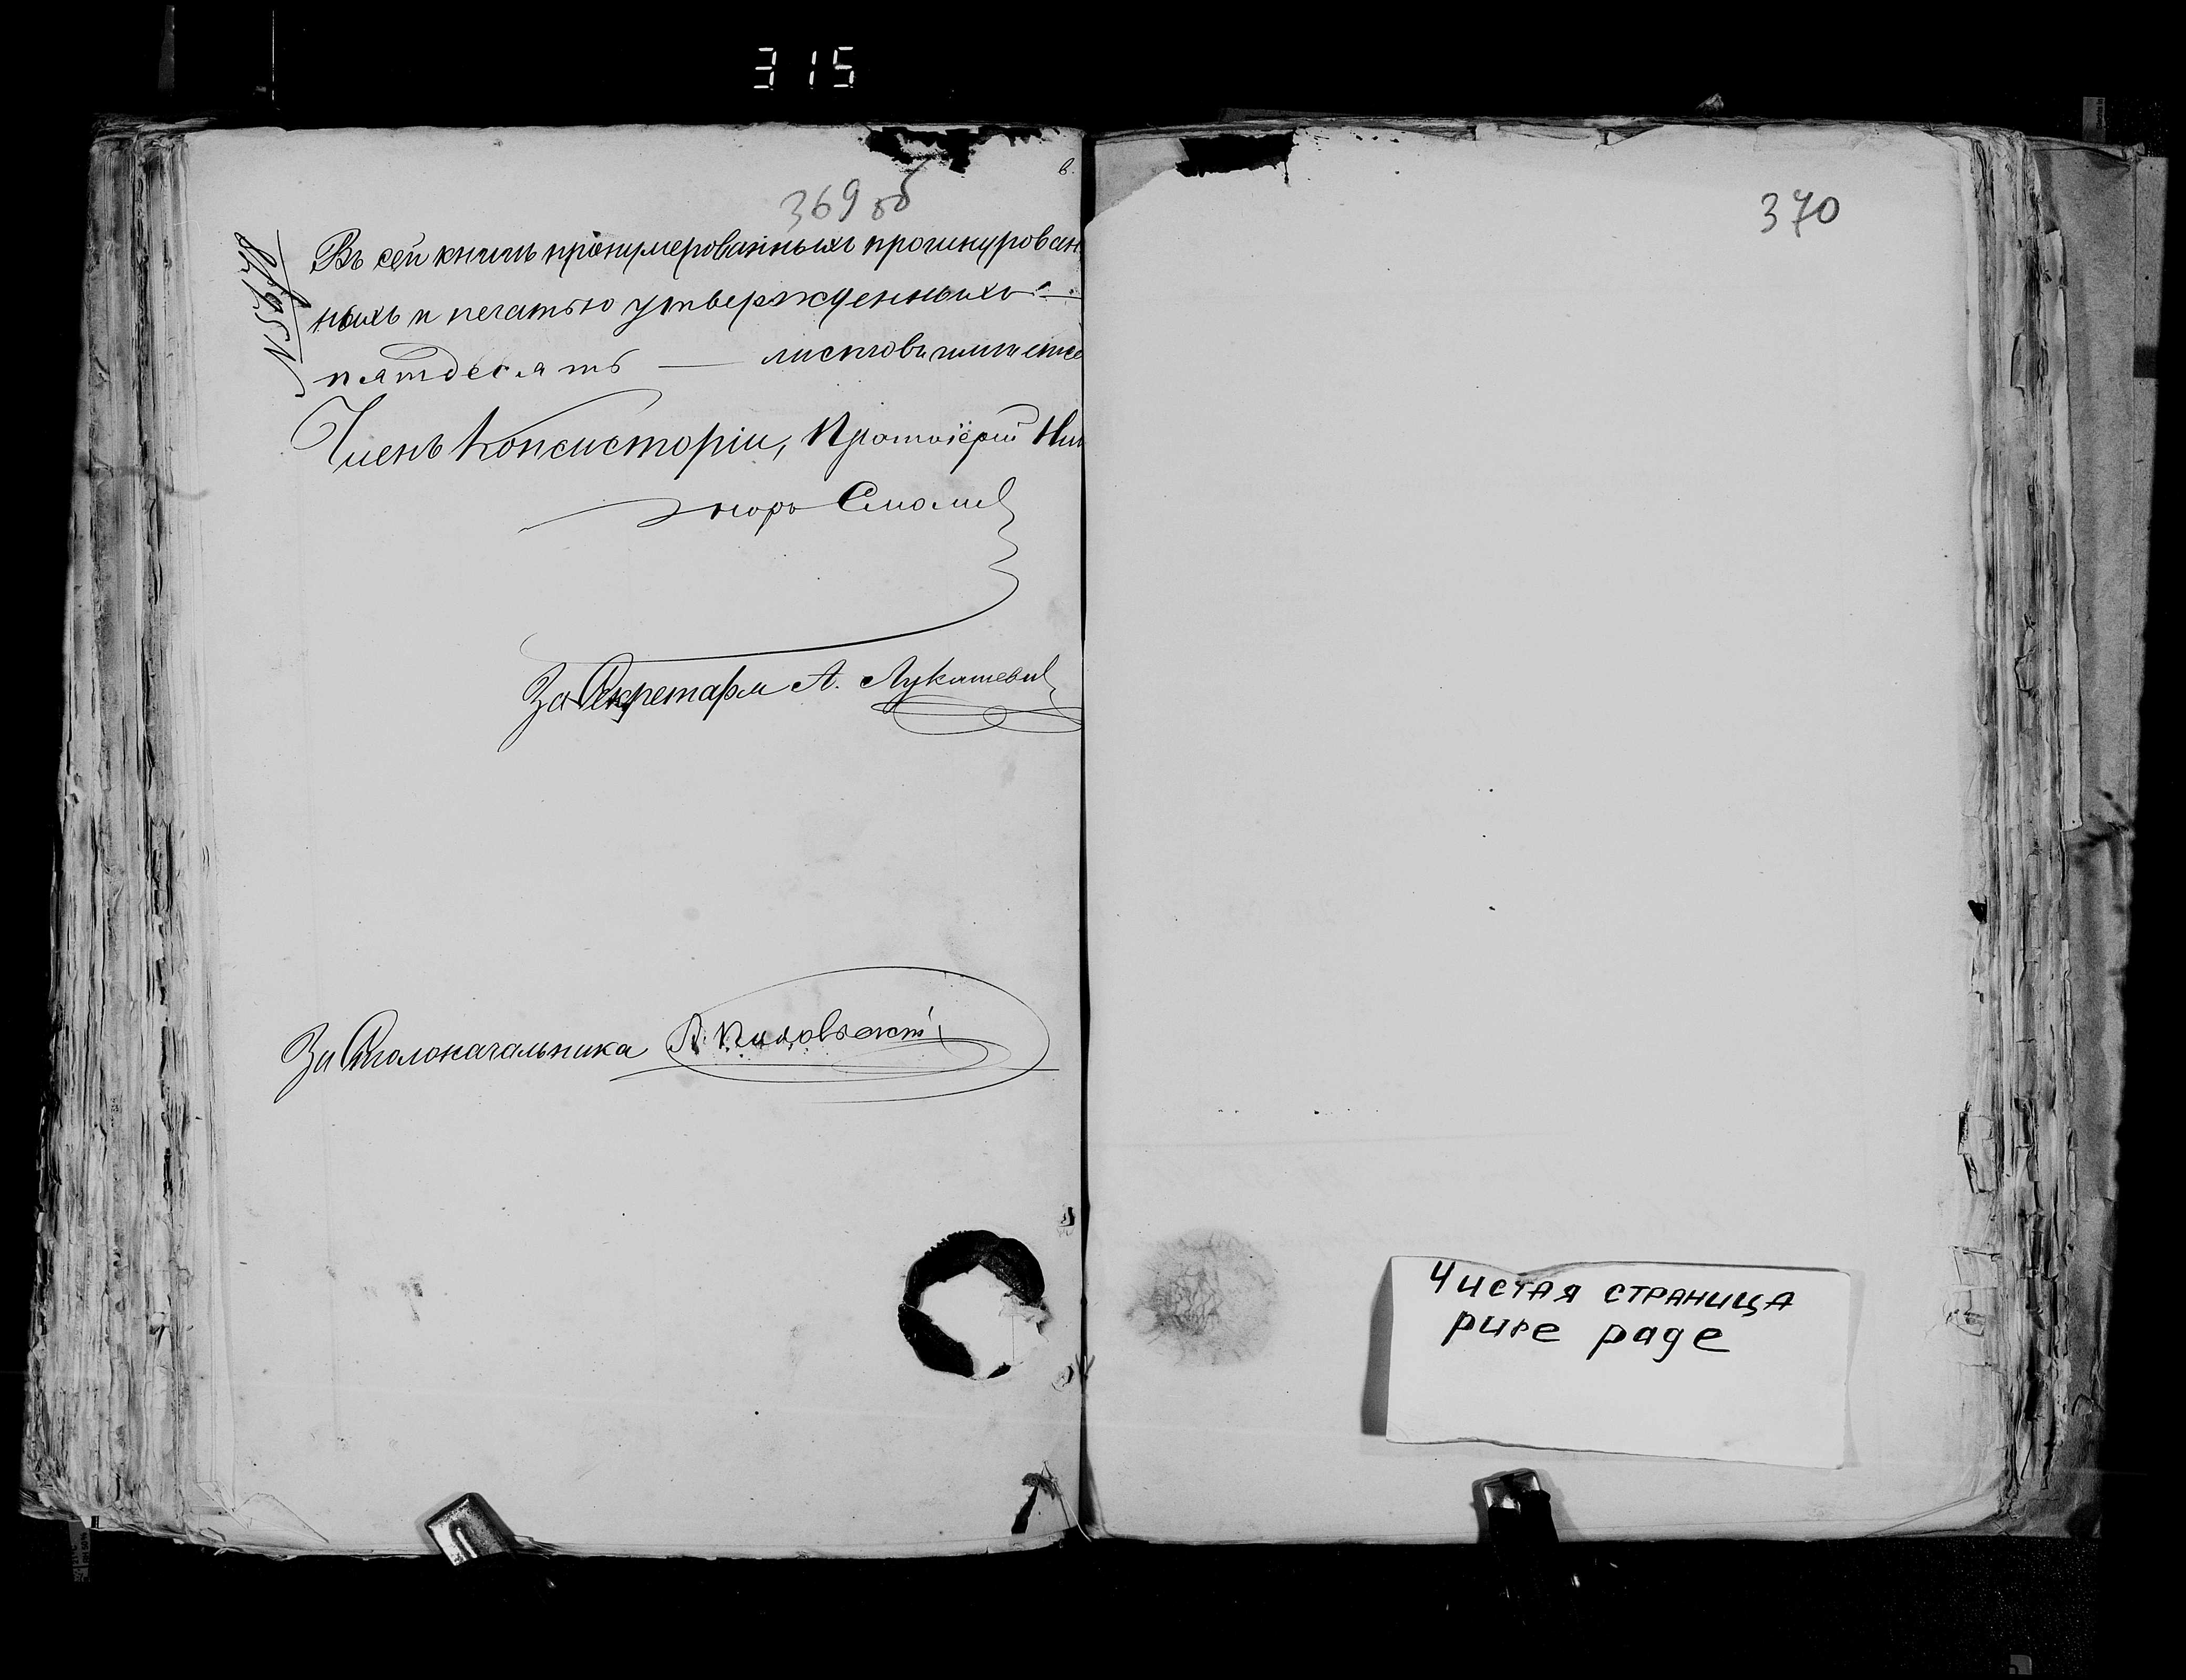 315
369 об
Въ сей книгѣ пронумерованныхъ прошнурован
ныхъ и печатью утвержденныхъ —
пятдесятъ — листовъ
Членъ Консисторіи, Протоіерей
Смоли
За Секретаря А. Лукашевич
За Столоначальника
370
Чистая страница
pure page